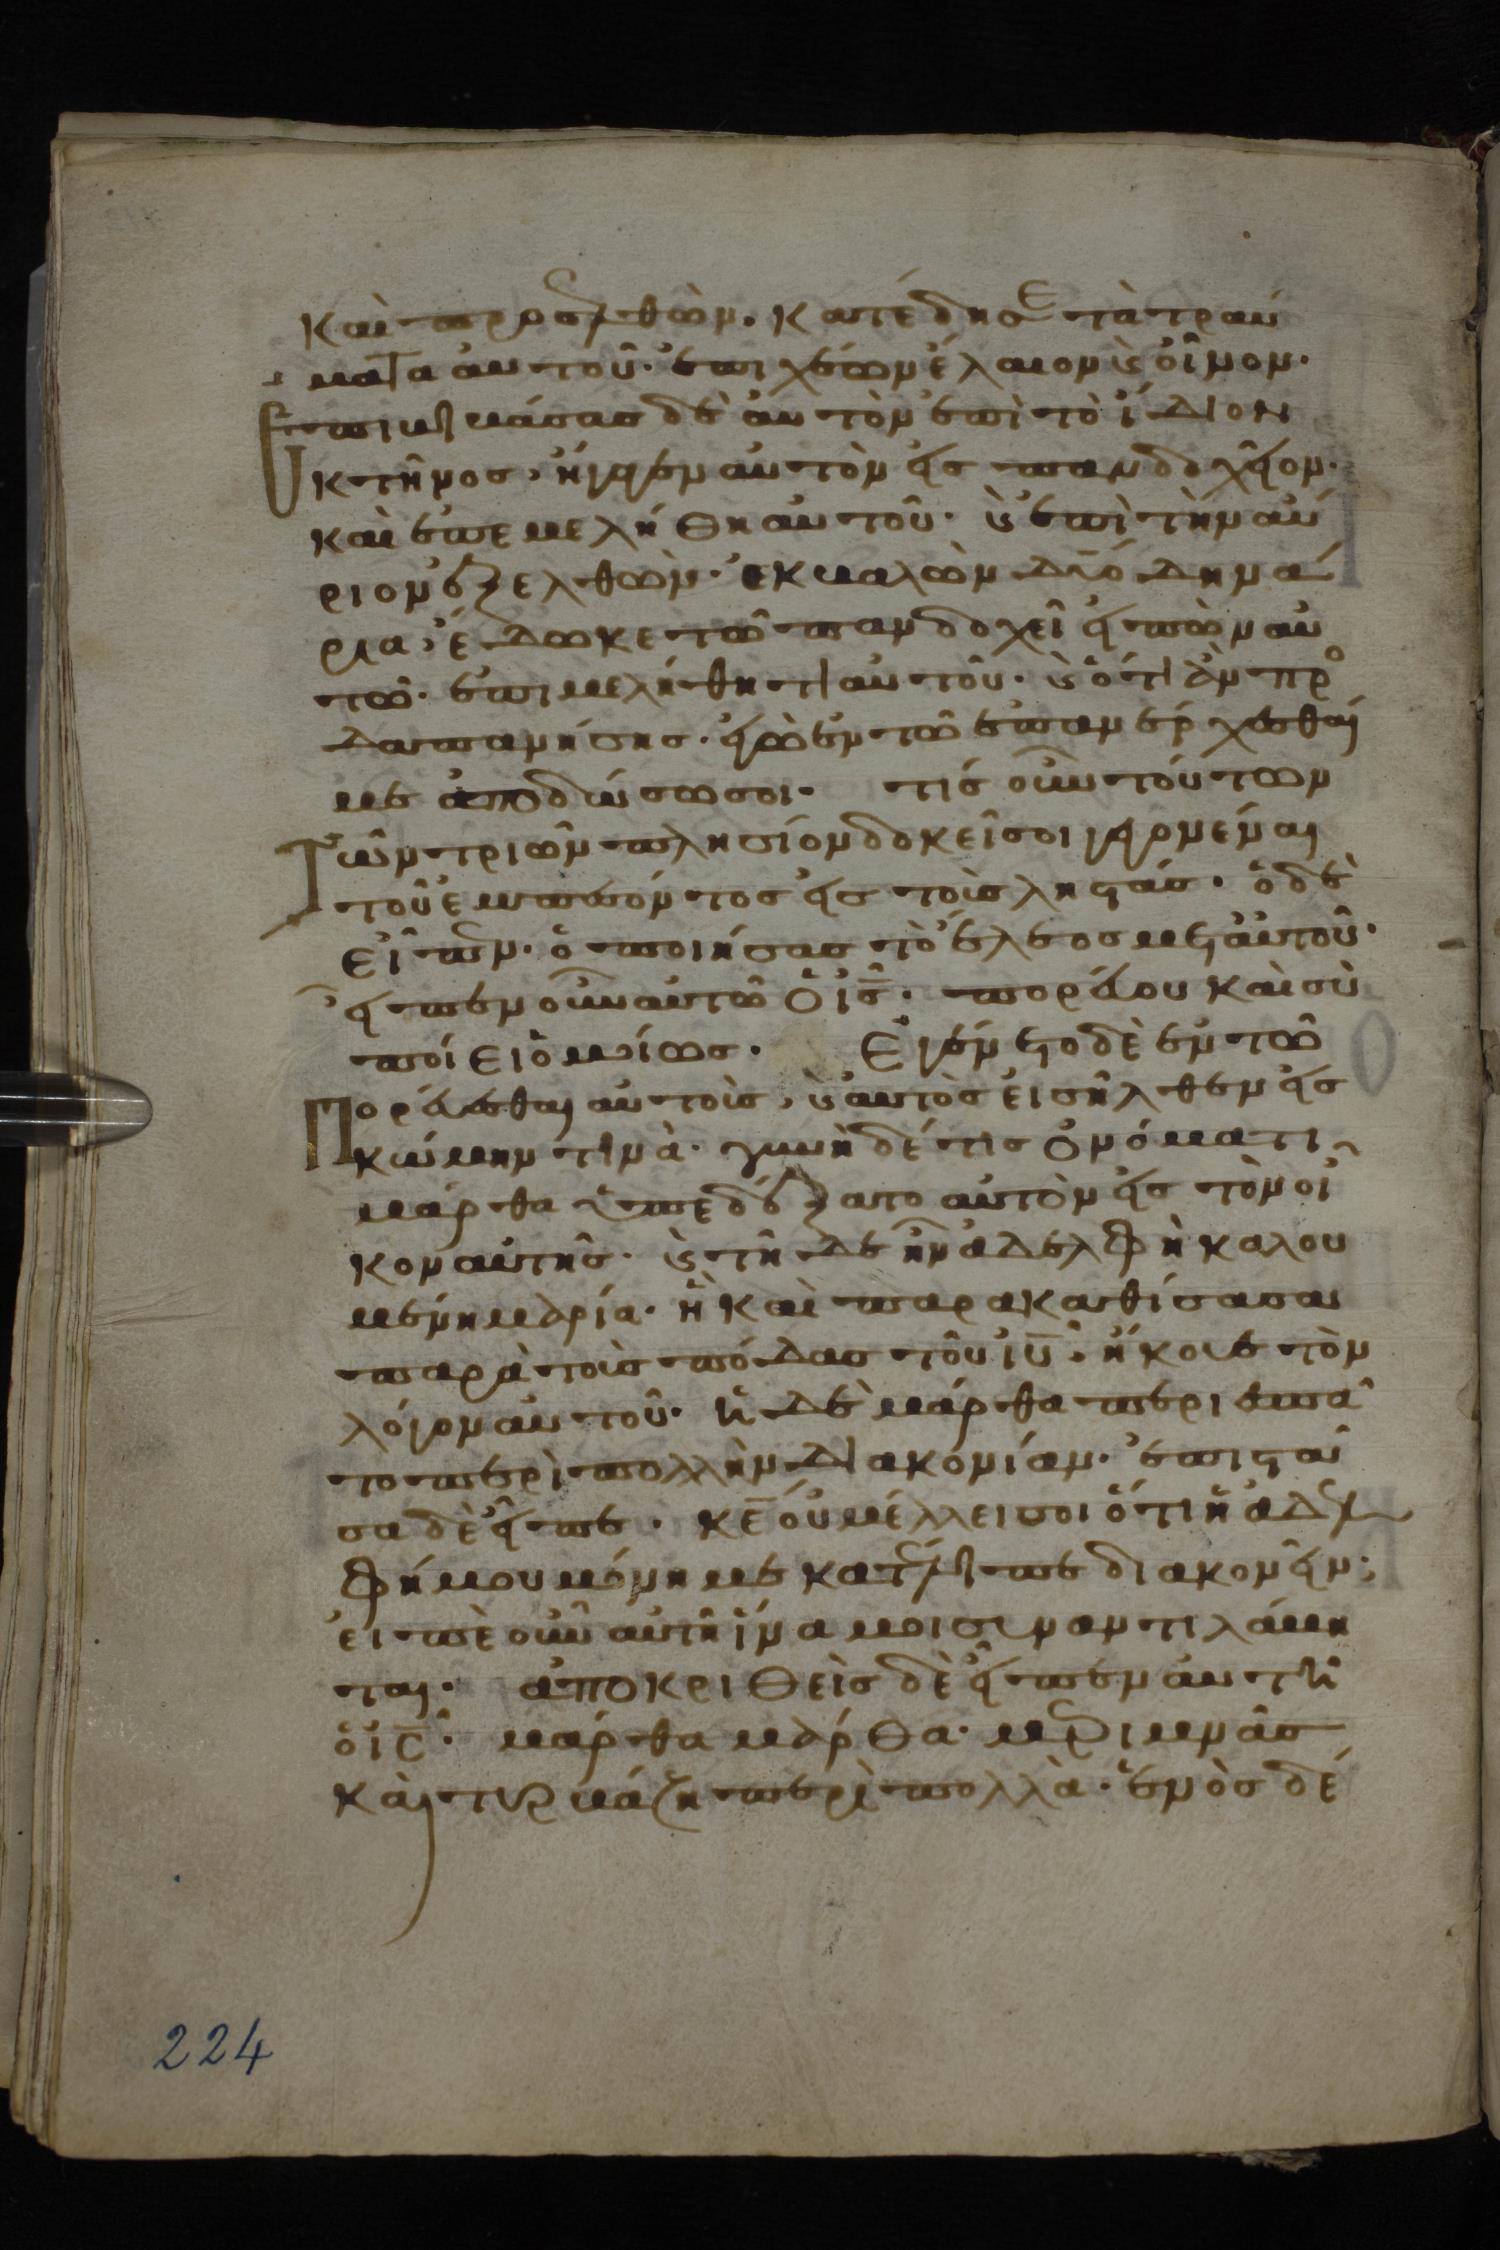 Καὶ προσελθὼν. κατέδησε τὰ τραύ
ματα αὐτοῦ· ἐπιχέων ἔλαιον ϗ οἶνον·
Ἐπιβιβάσας δὲ αὐτὸν ἐπὶ τὸ ἴδιον
κτῆνος, ἤγαγεν αὐτὸν εἰς πανδοχεῖον·
καὶ ἐπεμελήθη αὐτοῦ· ϗ ἐπὶ τὴν αὔ
ριον ἐξελθὼν· ἐκβαλὼν δύο δηνά
ρια, ἔδωκε τῶ πανδοχεῖ εἰπὼν αὐ
τῶ· ἐπιμελήθητι αὐτοῦ· ϗ ὅτι ἂν προσ
δαπανήσης· ἐγὼ ἐν τῶ ἐπανέρχεσθαί
με ἀποδώσω σοι· τίς οὖν τούτων
Τῶν τριῶν πλησίον δοκεῖ σοι γεγονέναι
τοῦ ἐμπεσόντος εἰς τοὺς ληστάς· ὁ δὲ
εἶπεν· ὁ ποιήσας τὸ ἔλεος μετ' αὐτοῦ·
εἶπεν οὖν αὐτῶ ὁ ις̅· πορεύου καὶ σὺ
ποίει ὁμοίως· Ἐγένετο δὲ ἐν τῶ
Πορεύεσθαι αὐτοὺς, ϗ αὐτὸς εἰσῆλθεν εἰς
κώμην τινὰ· γυνὴ δέ τις ὀνόματι
μάρθα ὑπεδέξατο αὐτὸν εἰς τὸν οἶ
κον αὐτῆς· ϗ τῆδε ἦν ἀδελφὴ καλου
μένη μαρία· ἣ καὶ παρακαθίσασα
παρὰ τοὺς πόδας τοῦ ιυ̅· ἤκουε τὸν
λόγον αὐτοῦ· ἡ δὲ μάρθα περιεσπᾶ
το περὶ πολλὴν διακονίαν· ἐπιστᾶ
σα δὲ εἶπε· κε̅ οὐ μέλλει σοι ὅτι ἡ ἀδελ
φή μου μόνην με κατέλιπε διακονεῖν;
εἰπὲ οὖν αὐτῆ ἵνα μοι συναντιλάβη
ται· ἀποκριθεὶς δὲ εἶπεν αὐτῆ
ὁ ις̅· μάρθα μάρθα· μεριμνᾶς
καὶ τυρβάζη περὶ πολλὰ· ἑνὸς δέ
224